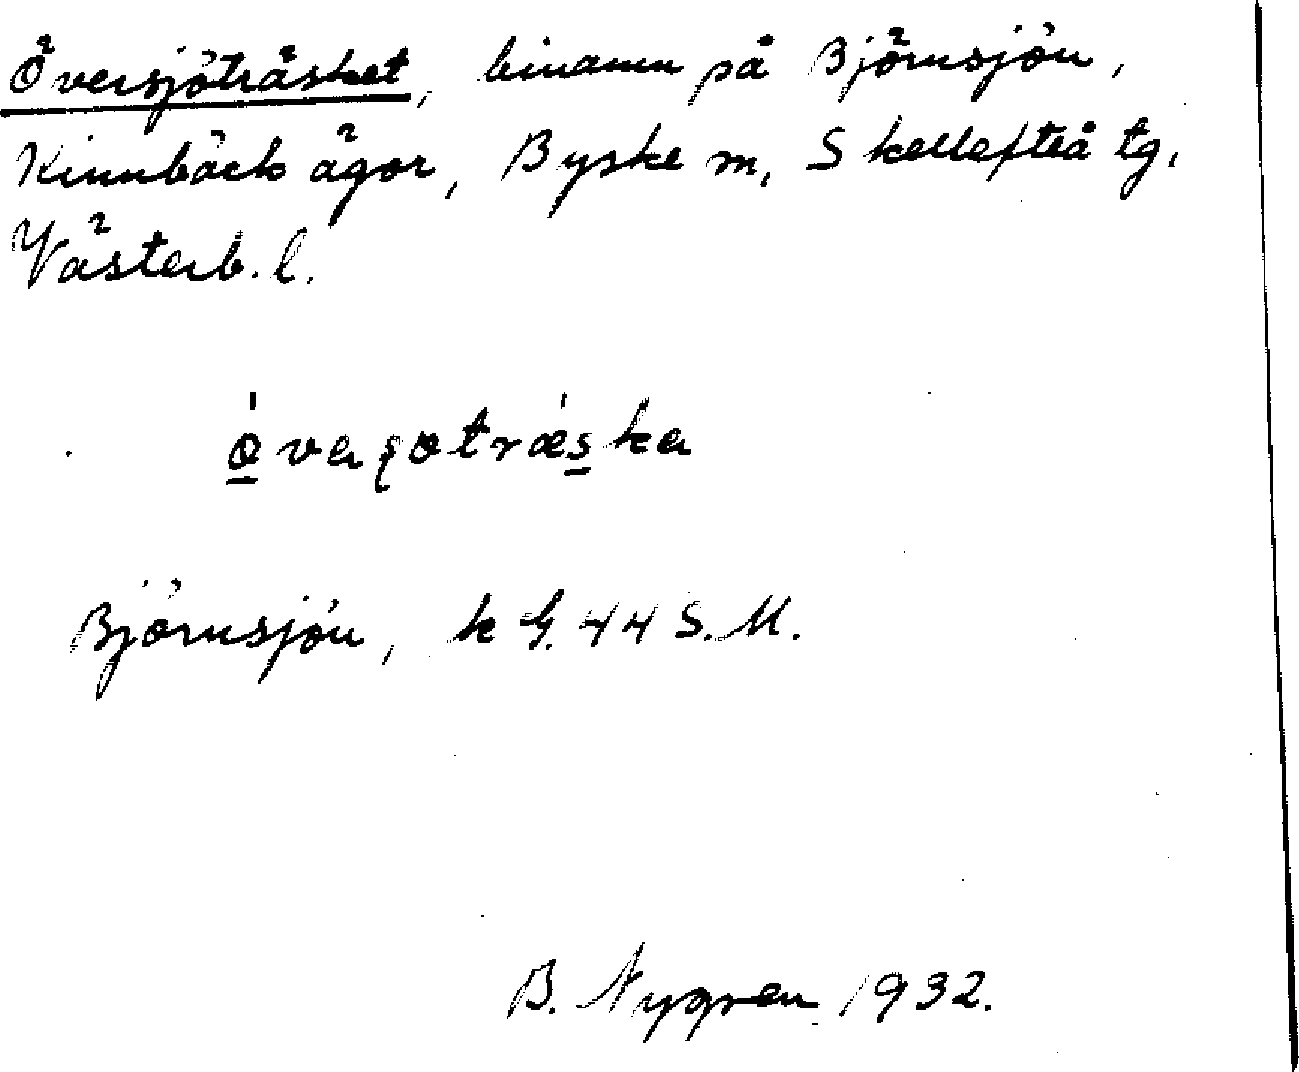 Översjöträsket, binamn på Björnsjön,
Kinnbäck ägor, Byske sn, Skellefteå tg,
Västerb. l.
ö́vaʂøtrǽska
Björnsjön, k G. 44 S.M.
B. Nygren 1932.